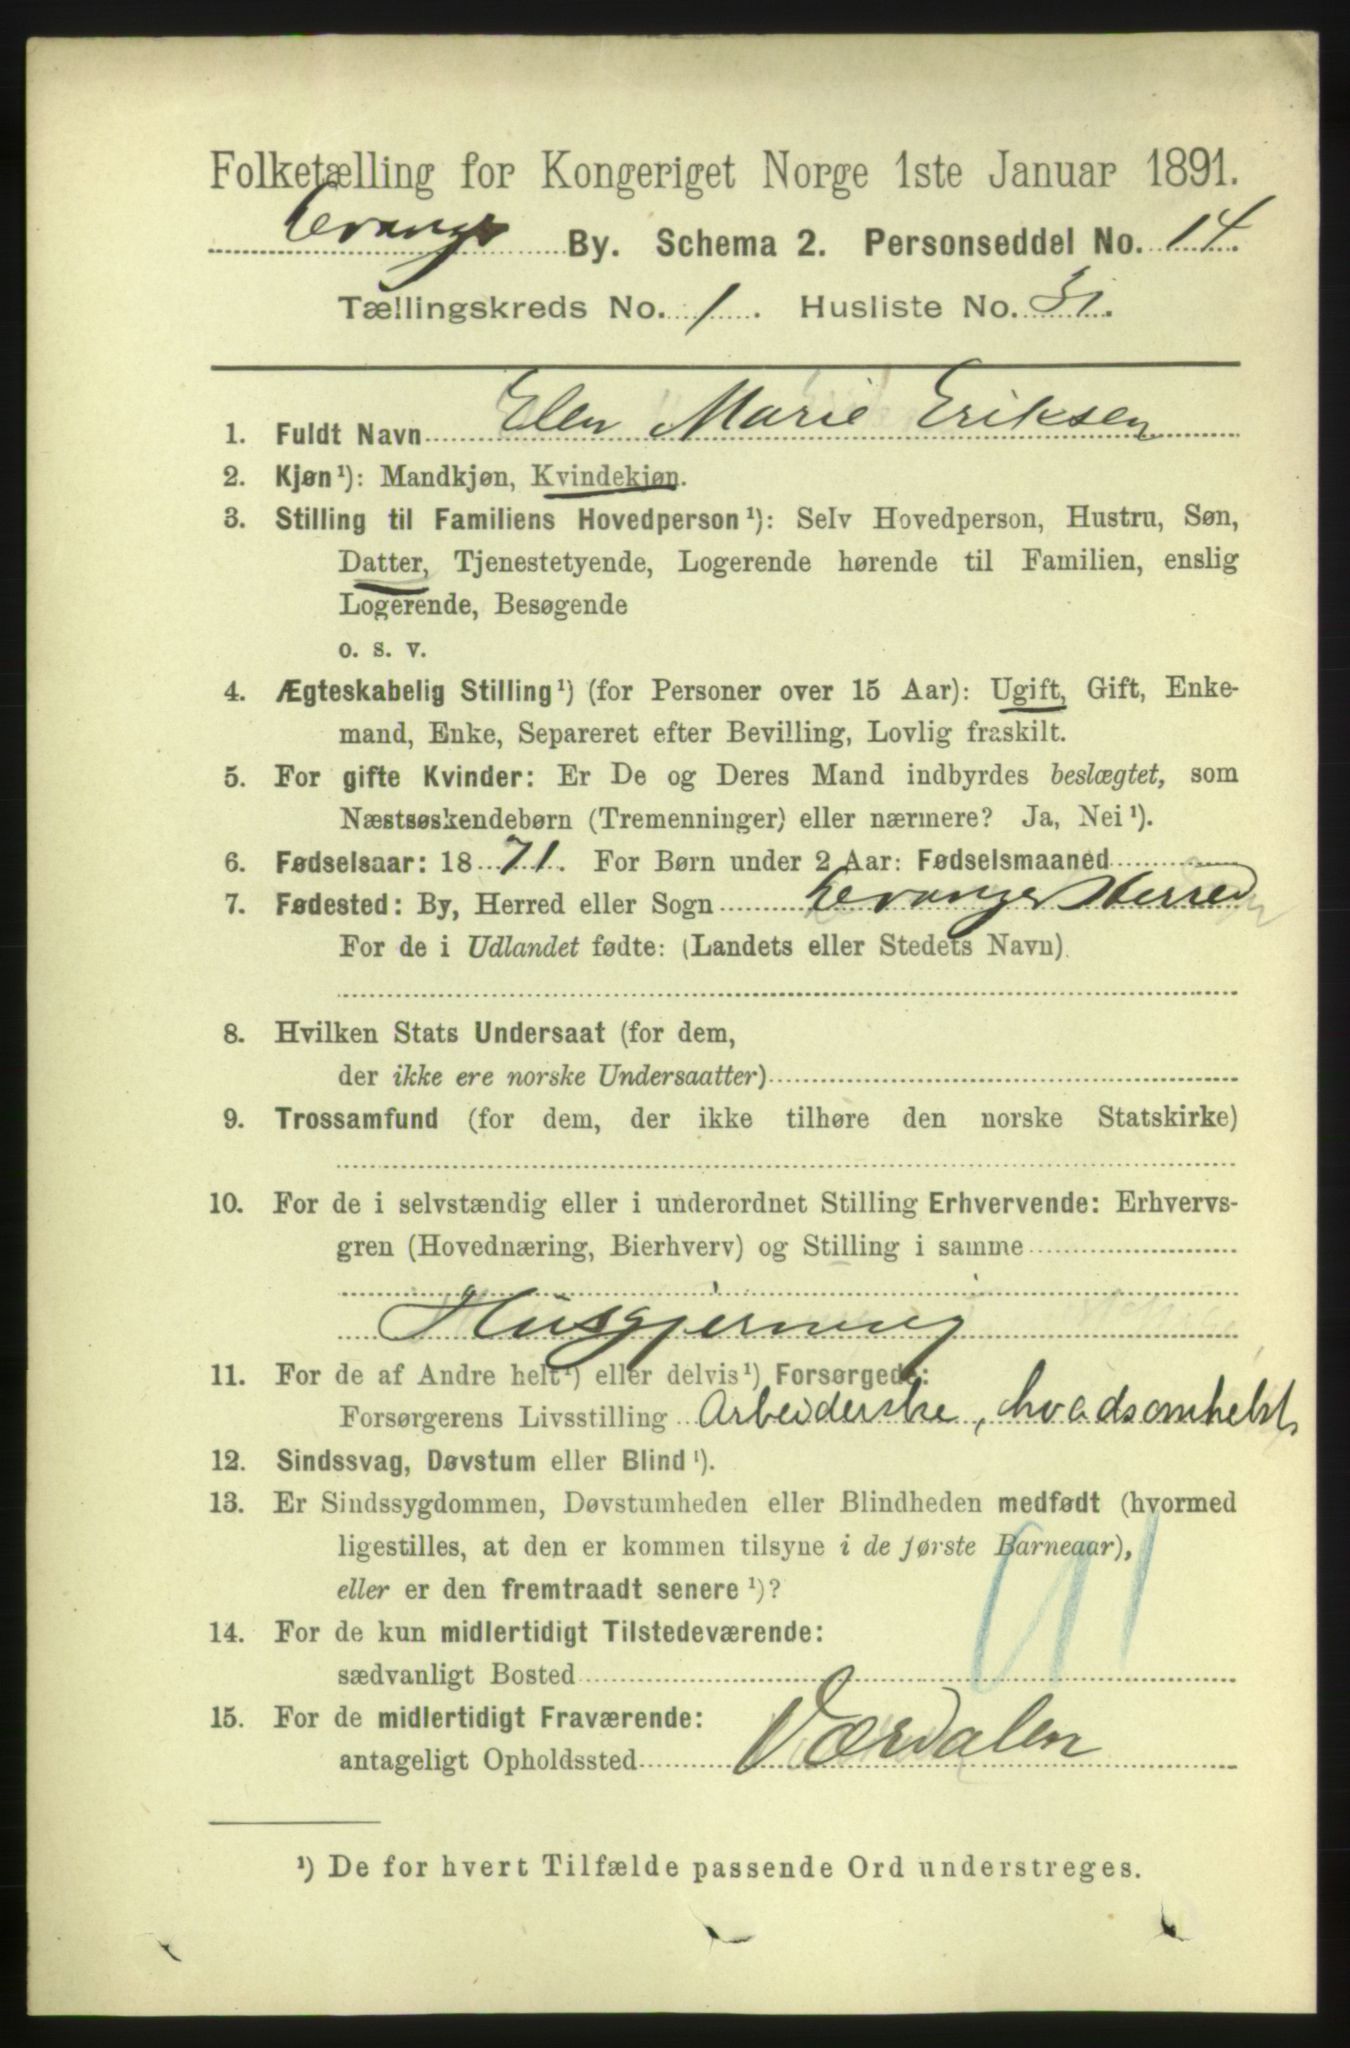 Folketælling for Kongeriget Norge 1ste Januar 1891.
Levanger By. Schema 2. Personseddel No. 14.
Tællingskreds No. 1. Husliste No. 51.
1. Fuldt Navn Elen Marie Eriksen
2. Kjøn¹): Mandkjøn, Kvindekjøn.
3. Stilling til Familiens Hovedperson¹): Selv Hovedperson, Hustru, Søn,
Datter, Tjenestetyende, Logerende hørende til Familien, enslig
Logerende, Besøgende
o. s. v.
4. Ægteskabelig Stilling¹) (for Personer over 15 Aar): Ugift, Gift, Enke-
mand, Enke, Separeret efter Bevilling, Lovlig fraskilt.
5. For gifte Kvinder: Er De og Deres Mand indbyrdes beslægtet, som
Næstsøskendebørn (Tremenninger) eller nærmere? Ja, Nei¹).
6. Fødselsaar: 1871. For Børn under 2 Aar: Fødselsmaaned
7. Fødested: By, Herred eller Sogn Levanger Herred
For de i Udlandet fødte: (Landets eller Stedets Navn)
8. Hvilken Stats Undersaat (for dem,
der ikke ere norske Undersaatter)
9. Trossamfund (for dem, der ikke tilhøre den norske Statskirke)
10. For de i selvstændig eller i underordnet Stilling Erhvervende: Erhvervs-
gren (Hovednæring, Bierhverv) og Stilling i samme
Husgjerning
11. For de af Andre helt¹) eller delvis¹) Forsørgede:
Forsørgerens Livsstilling Arbeiderske, hvadsomhelst
12. Sindssvag, Døvstum eller Blind¹).
13. Er Sindssygdommen, Døvstumheden eller Blindheden medfødt (hvormed
ligestilles, at den er kommen tilsyne i de første Barneaar),
eller er den fremtraadt senere¹)?
14. For de kun midlertidigt Tilstedeværende:
sædvanligt Bosted
15. For de midlertidigt Fraværende:
antageligt Opholdssted Værdalen
¹) De for hvert Tilfælde passende Ord understreges.